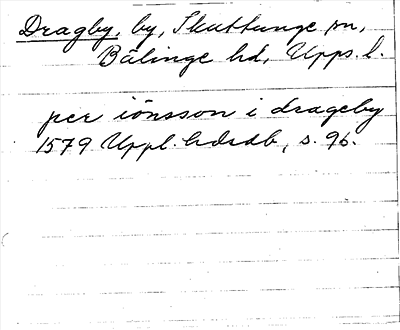 Dragby, by, Skuttunge sn,
Bälinge hd, Upps. l.
per iönsson i drageby
1579 Uppl. hdrdb, s. 96.